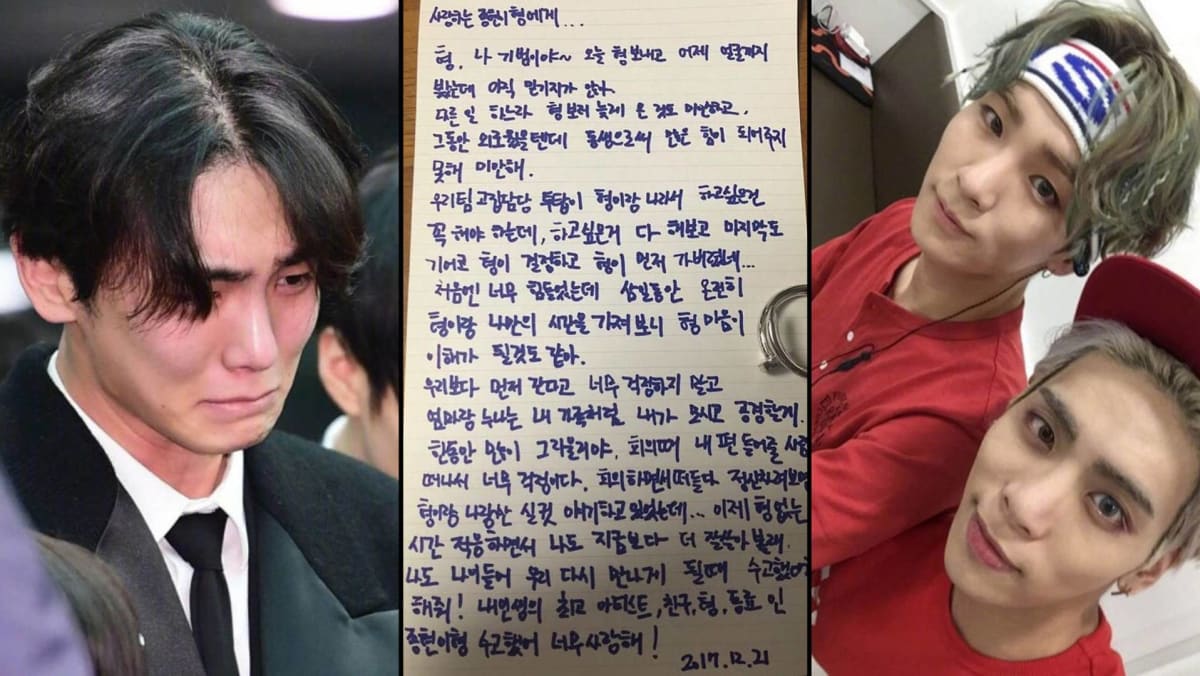 사랑하는 종현이형에게...
형, 나 기범이야~ 오늘 형 보내고 어제 얼굴까지
봤는데 아직 믿기지가 않아.
다른 일 하느라 형보러 늦게 온 것도 미안하고,
그동안 외로웠을텐데 동생으로써 많은 힘이 되어주지
못해 미안해.
우리팀 고집담당 투탑이 형이랑 나라서 하고싶은건
꼭 해야 하는데, 하고싶은거 다 해보고 마지막도
기어코 형이 결정하고 형이 먼저 가버렸네...
처음엔 너무 힘들었는데 삼일동안 온전히
형이랑 나만의 시간을 가져보니 형 마음이
이해가 될것도 같아.
우리보다 먼저 간다고 너무 걱정하지 말고
엄마랑 누나는 내 가족처럼 내가 모시고 공경할게.
한동안 많이 그리울거야, 회의때 내 편 들어줄 사람
떠나서 너무 걱정이다. 회의하면서 떠들다 정신차려보면
형이랑 나랑만 실컷 얘기하고 있었는데... 이제 형 없는
시간 적응하면서 나도 지금보다 더 잘살아 볼래.
나도 나이들어 우리 다시 만나게 될때 수고했어
해줘! 내인생의 최고 아티스트, 친구, 형, 동료 인
종현이형 수고했어 너무 사랑해!
2017.12.21
S